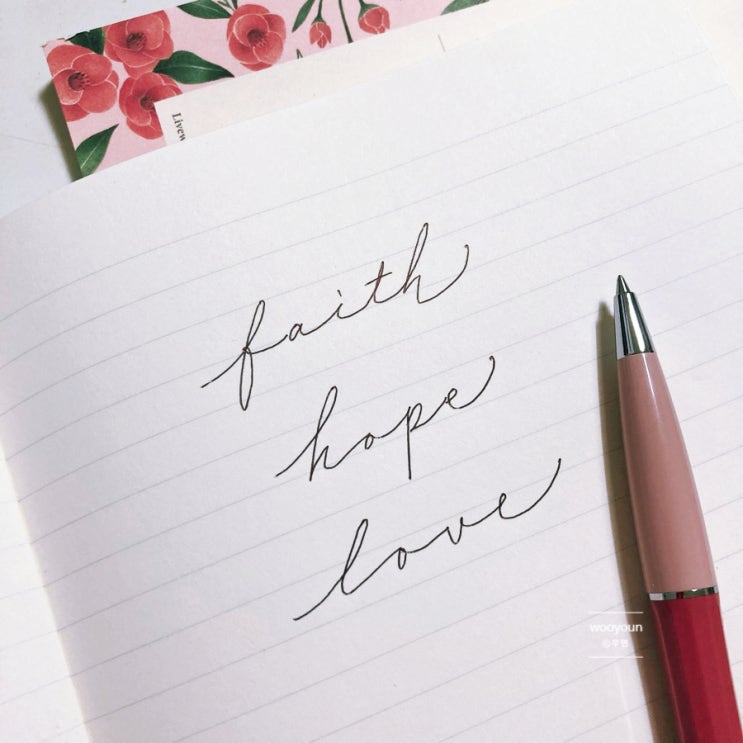 Livew
faith
hope
love
wooyoun
©우연